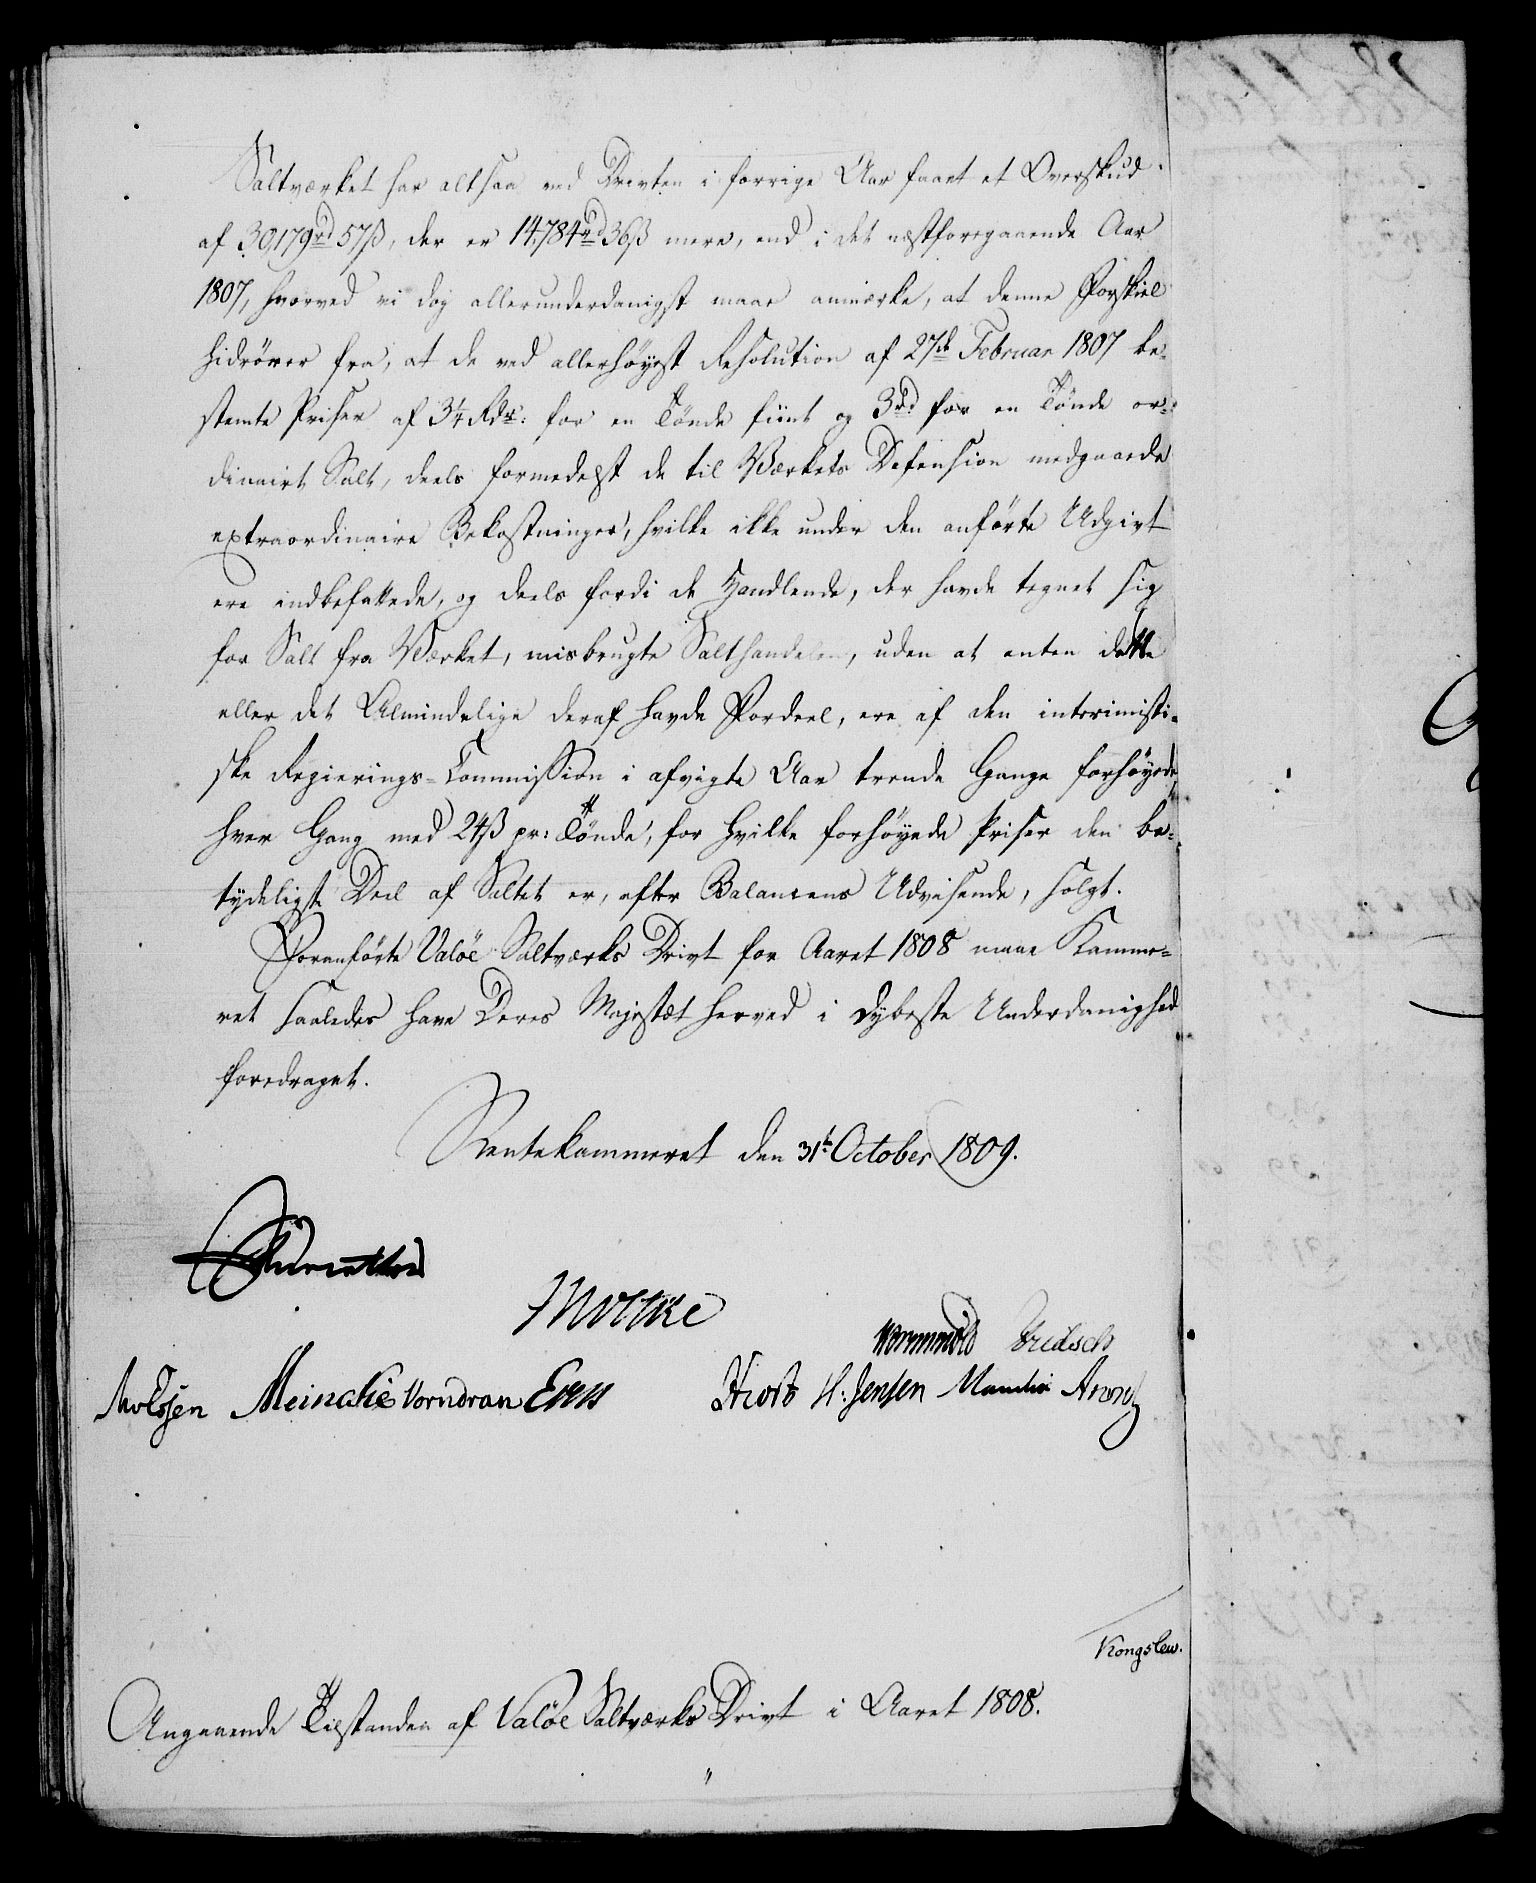 Saltværket har altsaa ved Drivten i forrige Aar faaet et Overskud
af 30,179rd 57ß, der er 14,784rd 36ß mere, end i det næstforegaaende Aar
1807, hvorved vi dog allerunderdanigst maae anmærke, at denne Forskiel
hidrörer fra, at de ved allerhöyest Resolution af 27de Februar 1807 be-
stemte Priser af 3¼ Rdr: for en Tönde fiint og 3rd for en Tönde or-
dinairt Salt, deels formedelst de til Værkets Defension medgaaede
extraordinaire Bekostninger, hvilke ikke under den anförte Udgivt
ere indbefattede, og deels fordi de Handlende, der havde tegnet sig
for Salt fra Værket, misbrugte Salthandelen, uden at enten dette
eller det Almindelige deraf havde Fordeel, ere af den interimisti-
ske Regierings-Commission i afvigte Aar trende Gange forhöyede,
hver Gang med 24ß pr: Tönde, for hvilke forhöyede Priser den be-
tydeligste Deel af Saltet er, efter Balancens Udvisende, solgt.
Foranförte Valöe Saltværks Drivt for Aaret 1808 maae Kamme-
ret saaledes have Deres Majestæt herved i dybeste Underdanighed
foredraget.
Rentekammeret den 31te October 1809.
Moltke
Wormskiold
Meincke Vorndran
Hiort H. Jensen
Kongslew.
Angaaende Tilstanden af Valöe Saltværks Drivt i Aaret 1808.